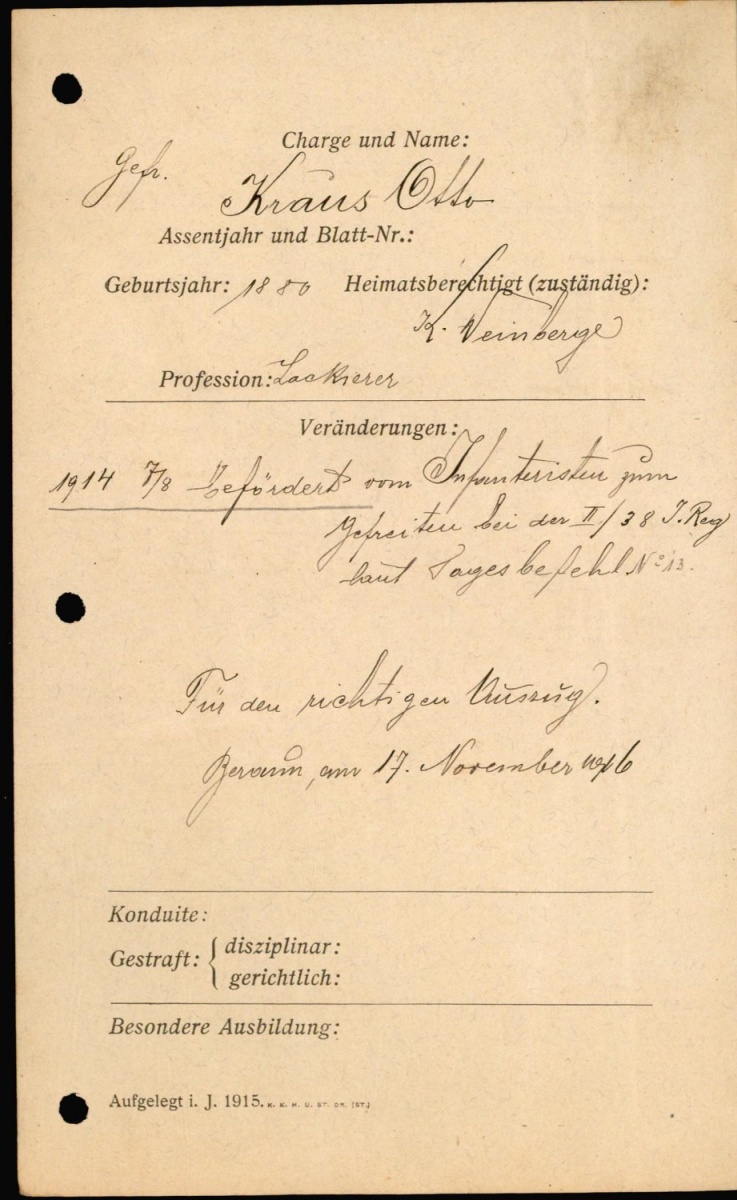 Charge und Name:
Gefr.
Kraus Otto
Assentjahr und Blatt-Nr.:
Geburtsjahr: 1880 Heimatsberechtigt (zuständig):
K. Weinberge
Profession: Lackierer
Veränderungen:
1914 7/8 Befördert vom Infanteristen zum
Gefreiten bei der II/38 I. Reg
laut Tagesbefehl No 13.
Für den richtigen Auszug.
Beraun, am 17. November 1916
Konduite:
Gestraft: { disziplinar:
gerichtlich:
Besondere Ausbildung:
Aufgelegt i. J. 1915. K. K. H. U. ST. DR. (ST.)